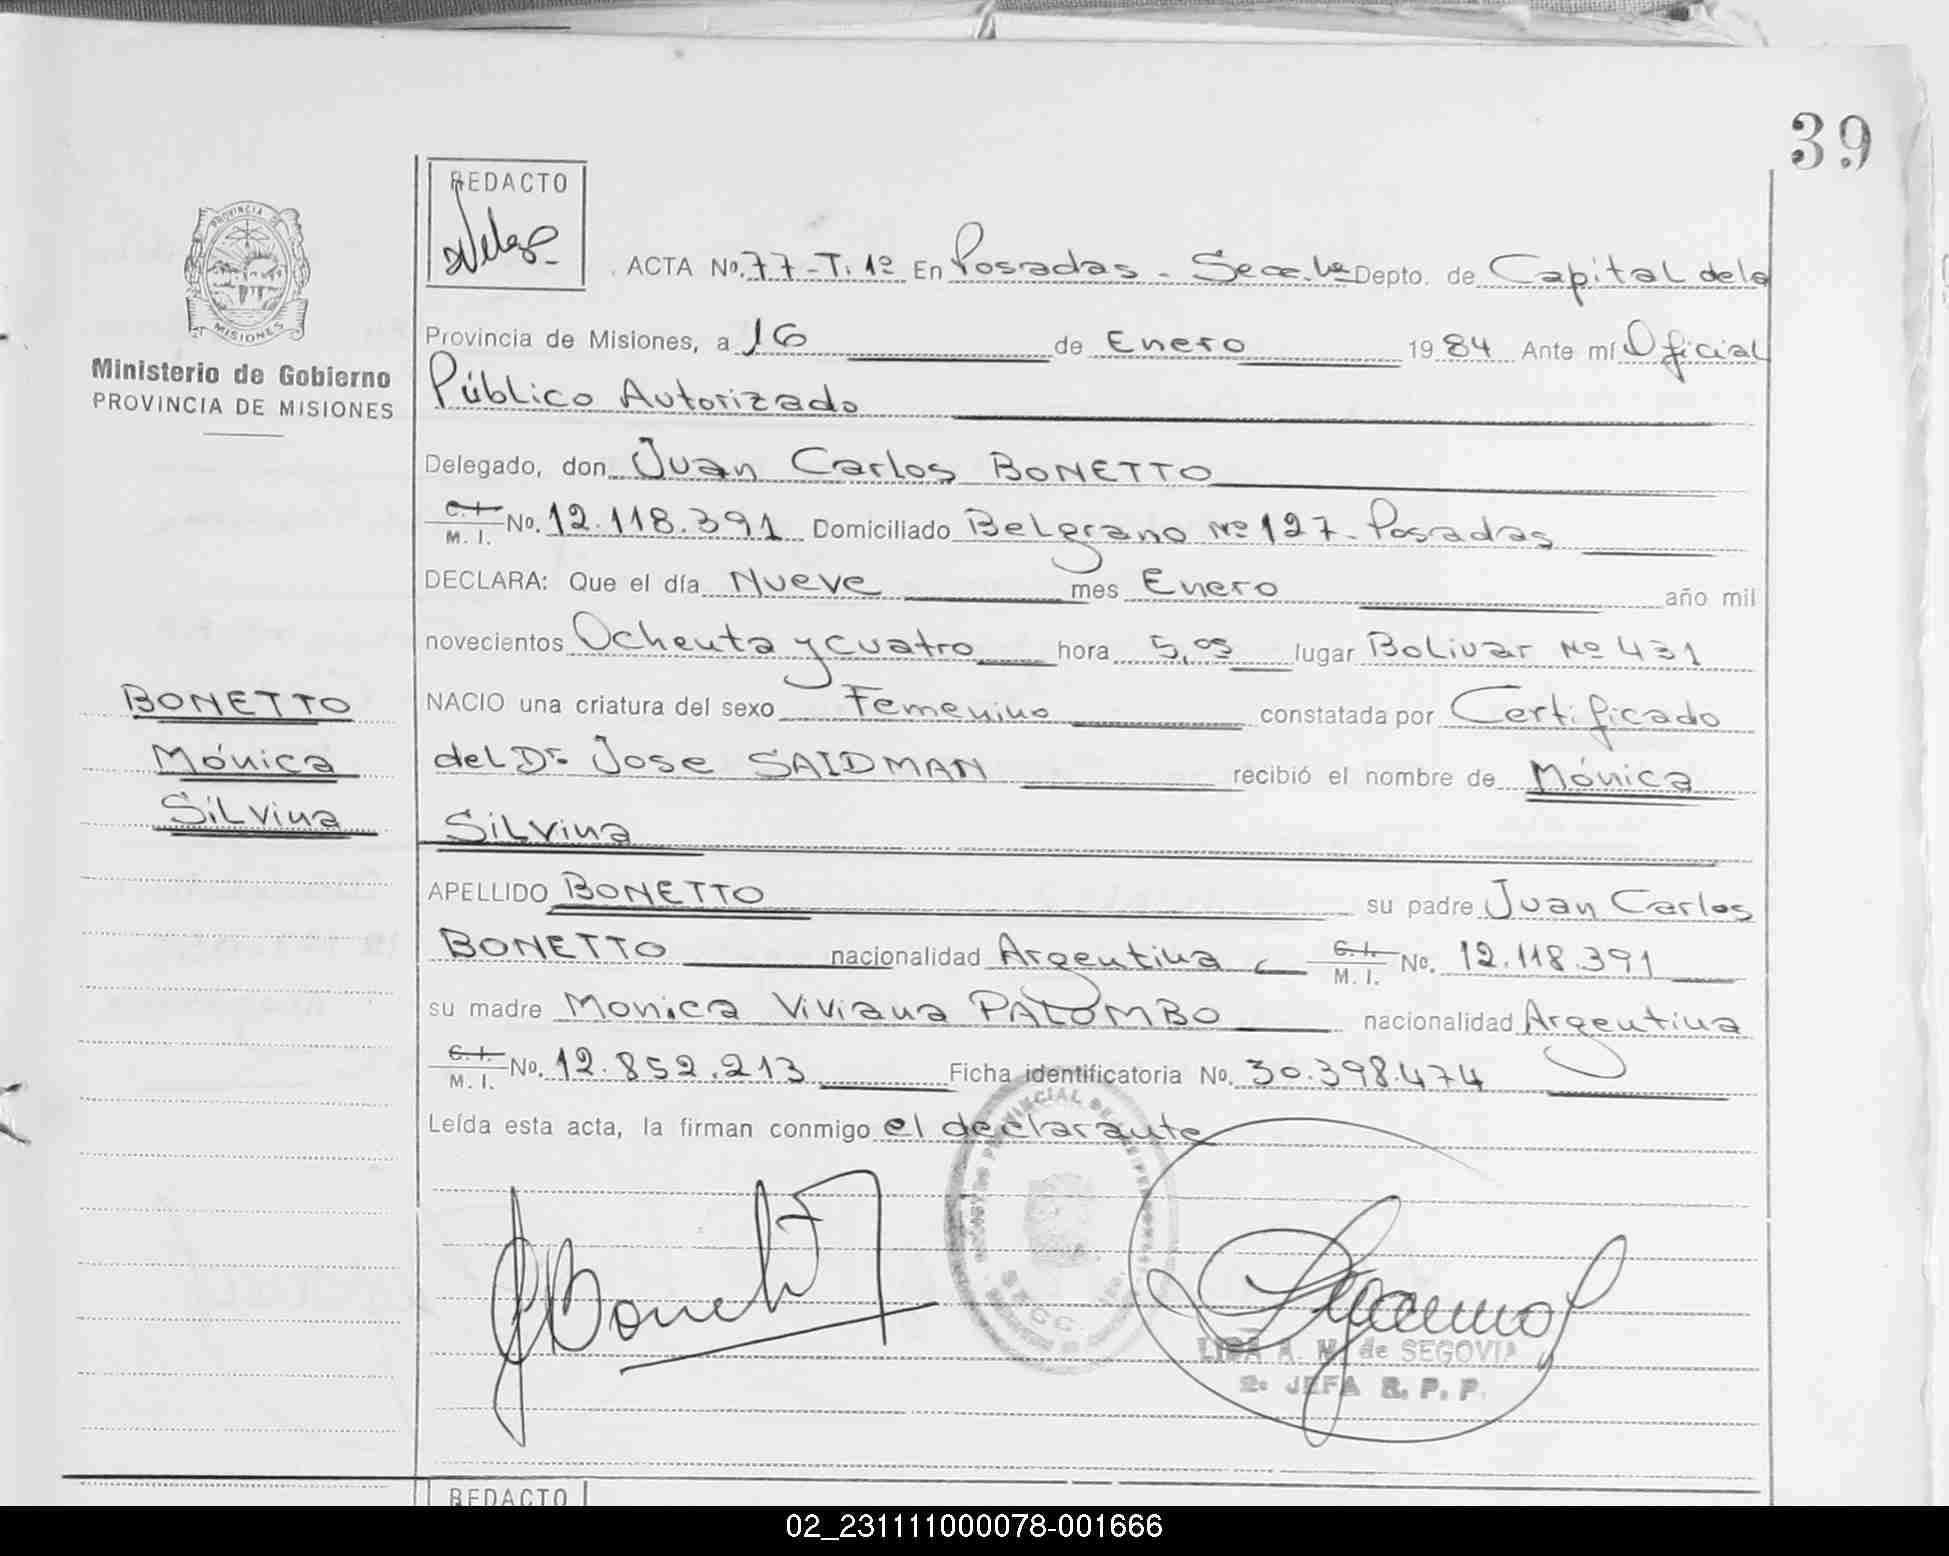 39
REDACTO
PROVINCIA DE
MISIONES
ACTA No. 77-T. 1º En Posadas - Secc. 1ª Depto. de Capital de la
Provincia de Misiones, a 16 de Enero 1984 Ante mí Oficial
Público Autorizado
Ministerio de Gobierno
PROVINCIA DE MISIONES
Delegado, don Juan Carlos BONETTO
C.I. M. I. No. 12.118.391 Domiciliado Belgrano Nº 127 - Posadas
DECLARA: Que el día Nueve mes Enero año mil
novecientos Ochenta y cuatro hora 5,05 lugar Bolivar Nº 431
NACIO una criatura del sexo Femenino constatada por Certificado
del Dr. Jose SAIDMAN recibió el nombre de Mónica
Silvina
BONETTO
Mónica
Silvina
APELLIDO BONETTO su padre Juan Carlos
BONETTO nacionalidad Argentina C.I. M. I. No. 12.118.391
su madre Monica Viviana PALOMBO nacionalidad Argentina
C.I. M. I. No. 12.852.213 Ficha identificatoria No. 30.398.474
Leída esta acta, la firman conmigo el declarante
LIDA A. M. de SEGOVIA
2º JEFA R. P. P.
REDACTO
02_231111000078-001666